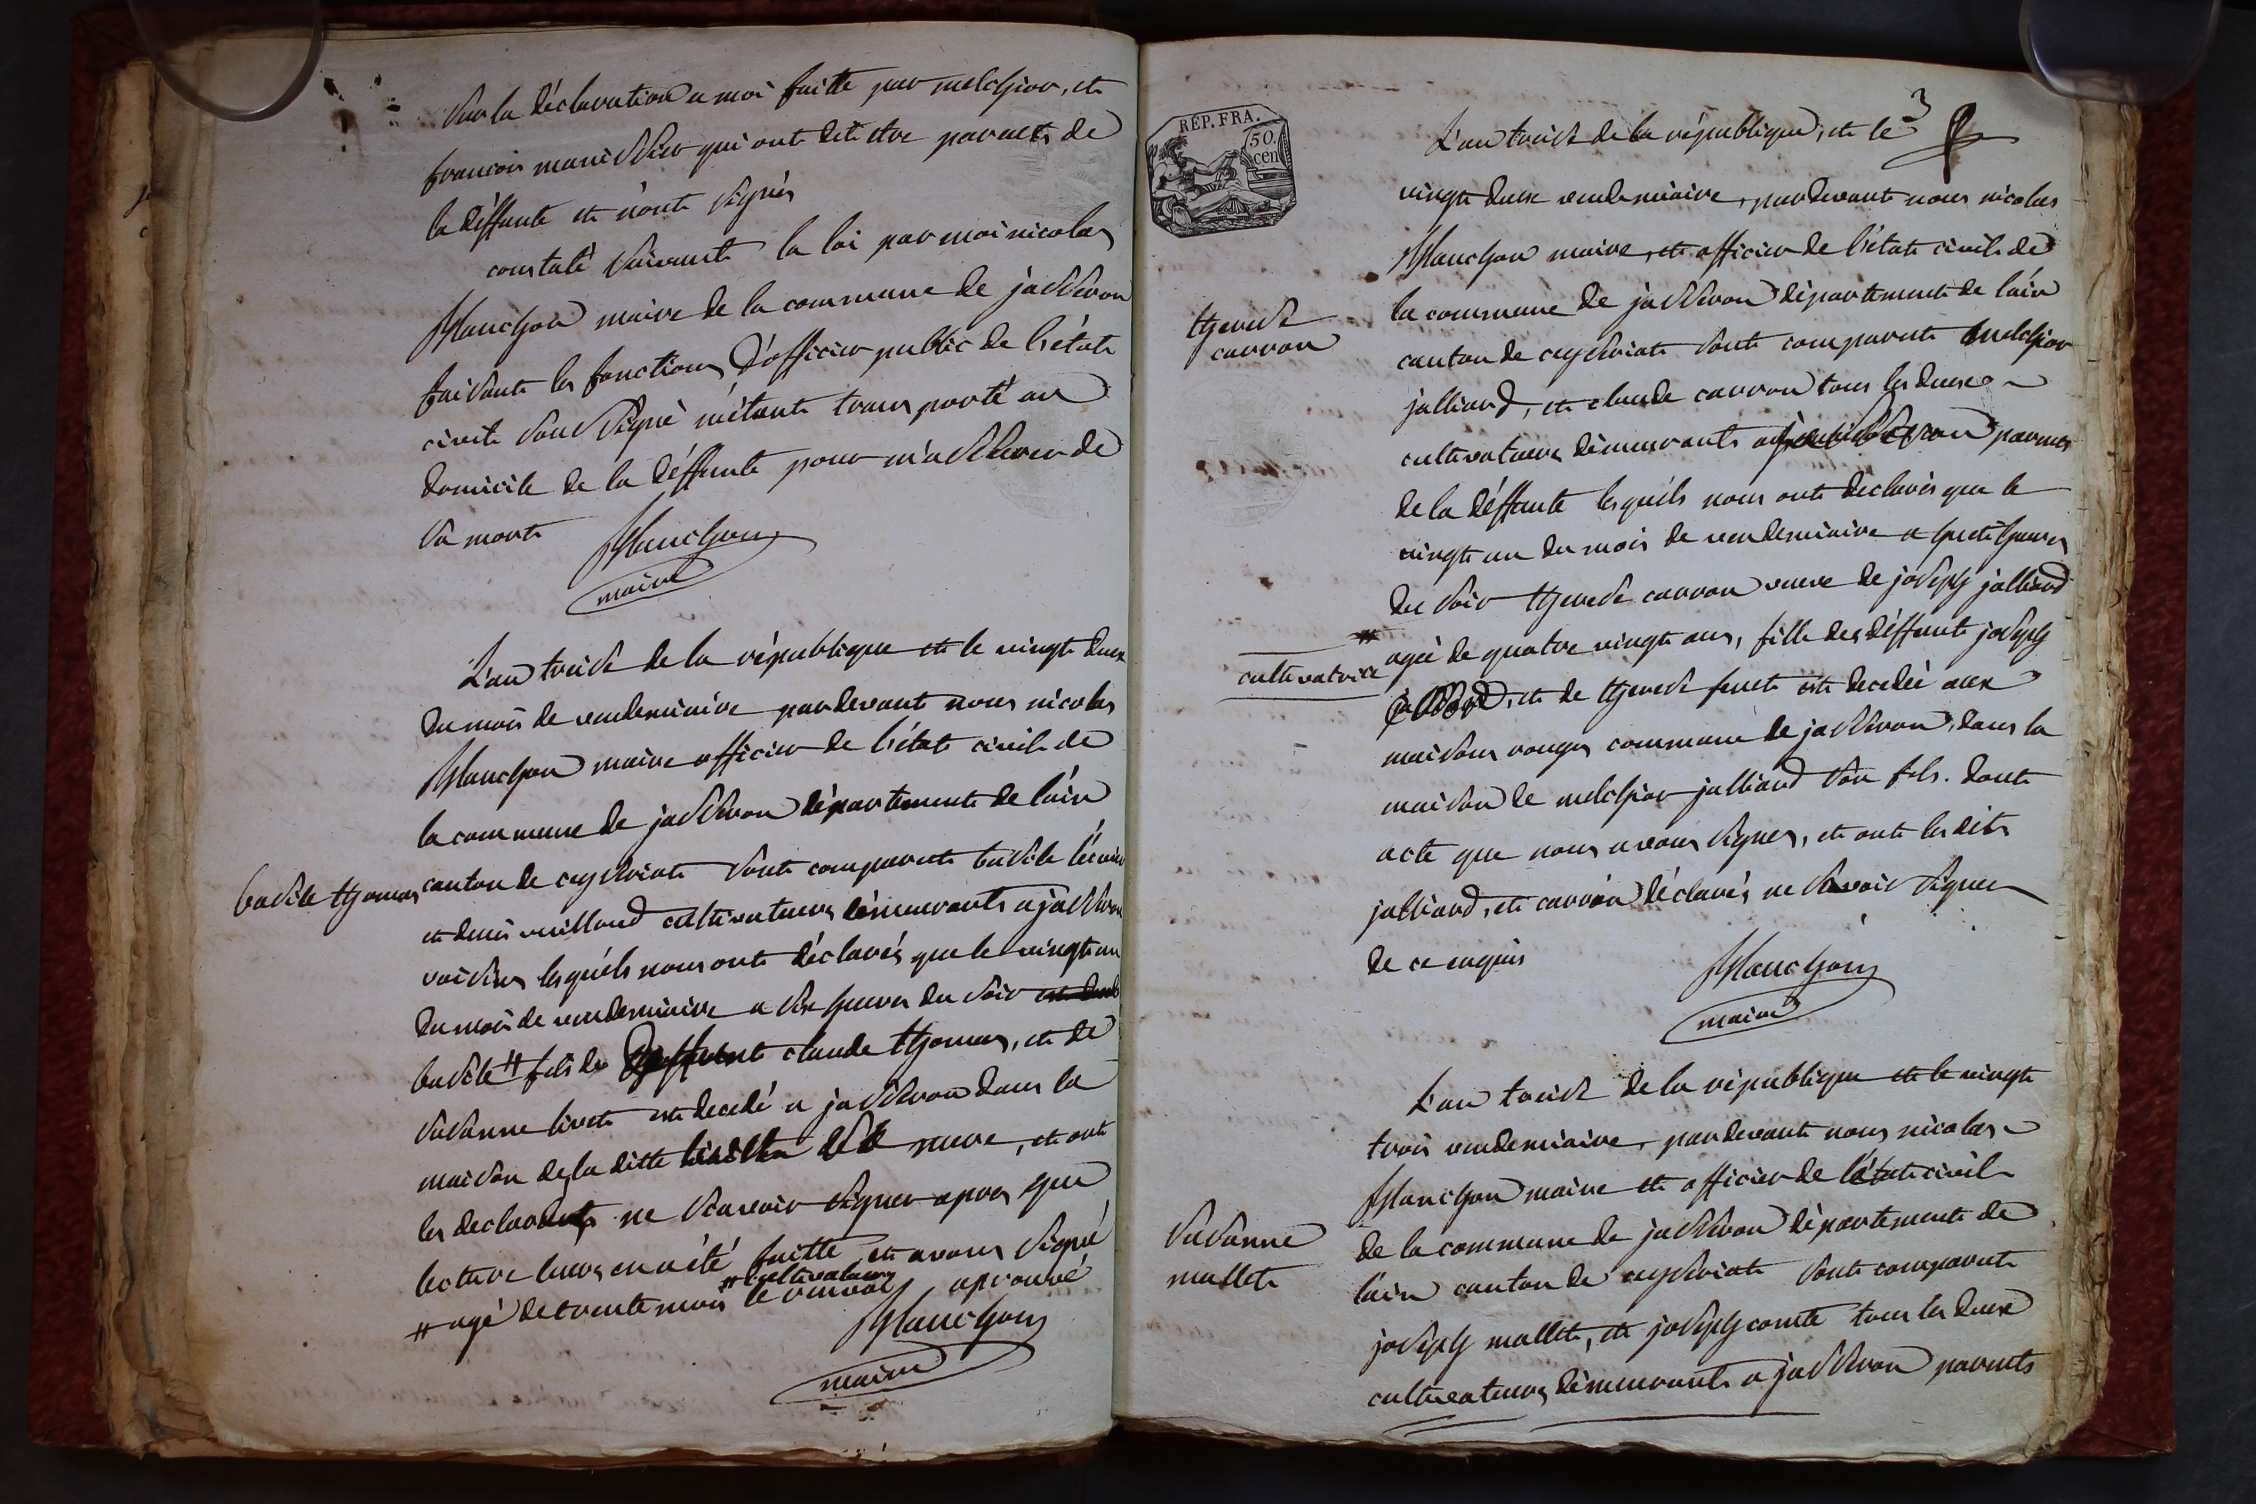 Sur la déclaration a moi faitte par melchior, et
francois marie qui ont dit etre parents de
la déffunte et n'ont signés
constaté suivant la loi par moi nicolas
Manchon maire de la commune de jasseron
faisant les fonctions d'officier public de l'état
civil soussigné m'étant transporté au
domicile de la déffunte pour m'assurer de
sa mort
Manchon
maire
L'an treize de la république et le vingt deux
du mois de vendemiaire pardevant nous nicolas
Manchon maire officier de l'état civil de
la commune de jasseron département de l'ain
basile thomas
canton de ceyseriat sont comparut basile
et denis vuillond cultivateurs démeurants a jasseron
voisins lesquéls nous ont déclarés que le vingt un
du mois de vendemiaire a six heures du soir
basile # fils de deffunt claude thomas, et de
susanne livet est decedé a jasseron dans la
maison de la ditte sa mere, et ont
les declarants ne scavoir signer apres que
lecture leurs en a été faitte et avons signé
# cultivateurs
# agé de trente mois le renvoi aprouvé
Manchon
maire
3
RÉP. FRA.
50.
cen
L'an treize de la république, et le
vingt deux vendemiaire, pardevant nous nicolas
Manchon maire, et officier de l'état civil de
la commune de jasseron département de l'ain
therese
carron
canton de ceyseriat sont comparut melchior
jalliard, et claude carron tous les deux
cultivateurs démeurants a jasseron parents
de la déffunte lesquéls nous ont declarés que le
vingt un du mois de vendemiaire a huit heures
du soir therese carron veuve de joseph jalliard
#
cultivatrice
agée de quatre vingt ans, fille des déffunts joseph
et de therese feret est decedée aux
maisons rouges commune de jasseron, dans la
maison de melchior jalliard son fils. dont
acte que nous avons signer, et ont les dits
jalliard, et carron déclarés ne scavoir signer
de ce enquis
Manchon
maire
L'an treize de la république et le vingt
trois vendemiaire, pardevant nous nicolas
Manchon maire et officier de l'état civil
susanne
mallet
de la commune de jasseron département de
l'ain canton de ceyseriat sont comparut
joseph mallet, et joseph comte tous les deux
cultivateurs démeurants a jasseron parents